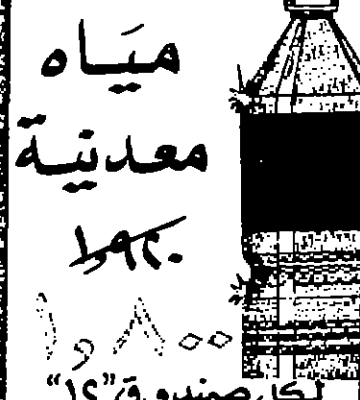 مياه
معدنية
١٫٩٢٠
١٫٨٠٠
لكل صندوق "١٢"